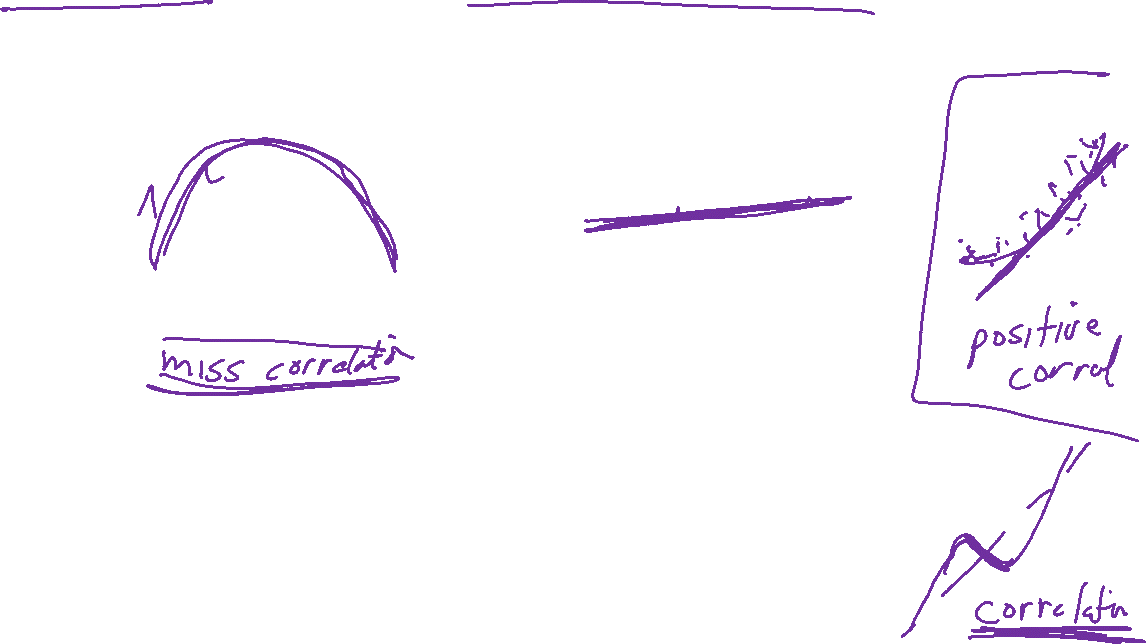 miss correlatin
positive
corral
correlatin